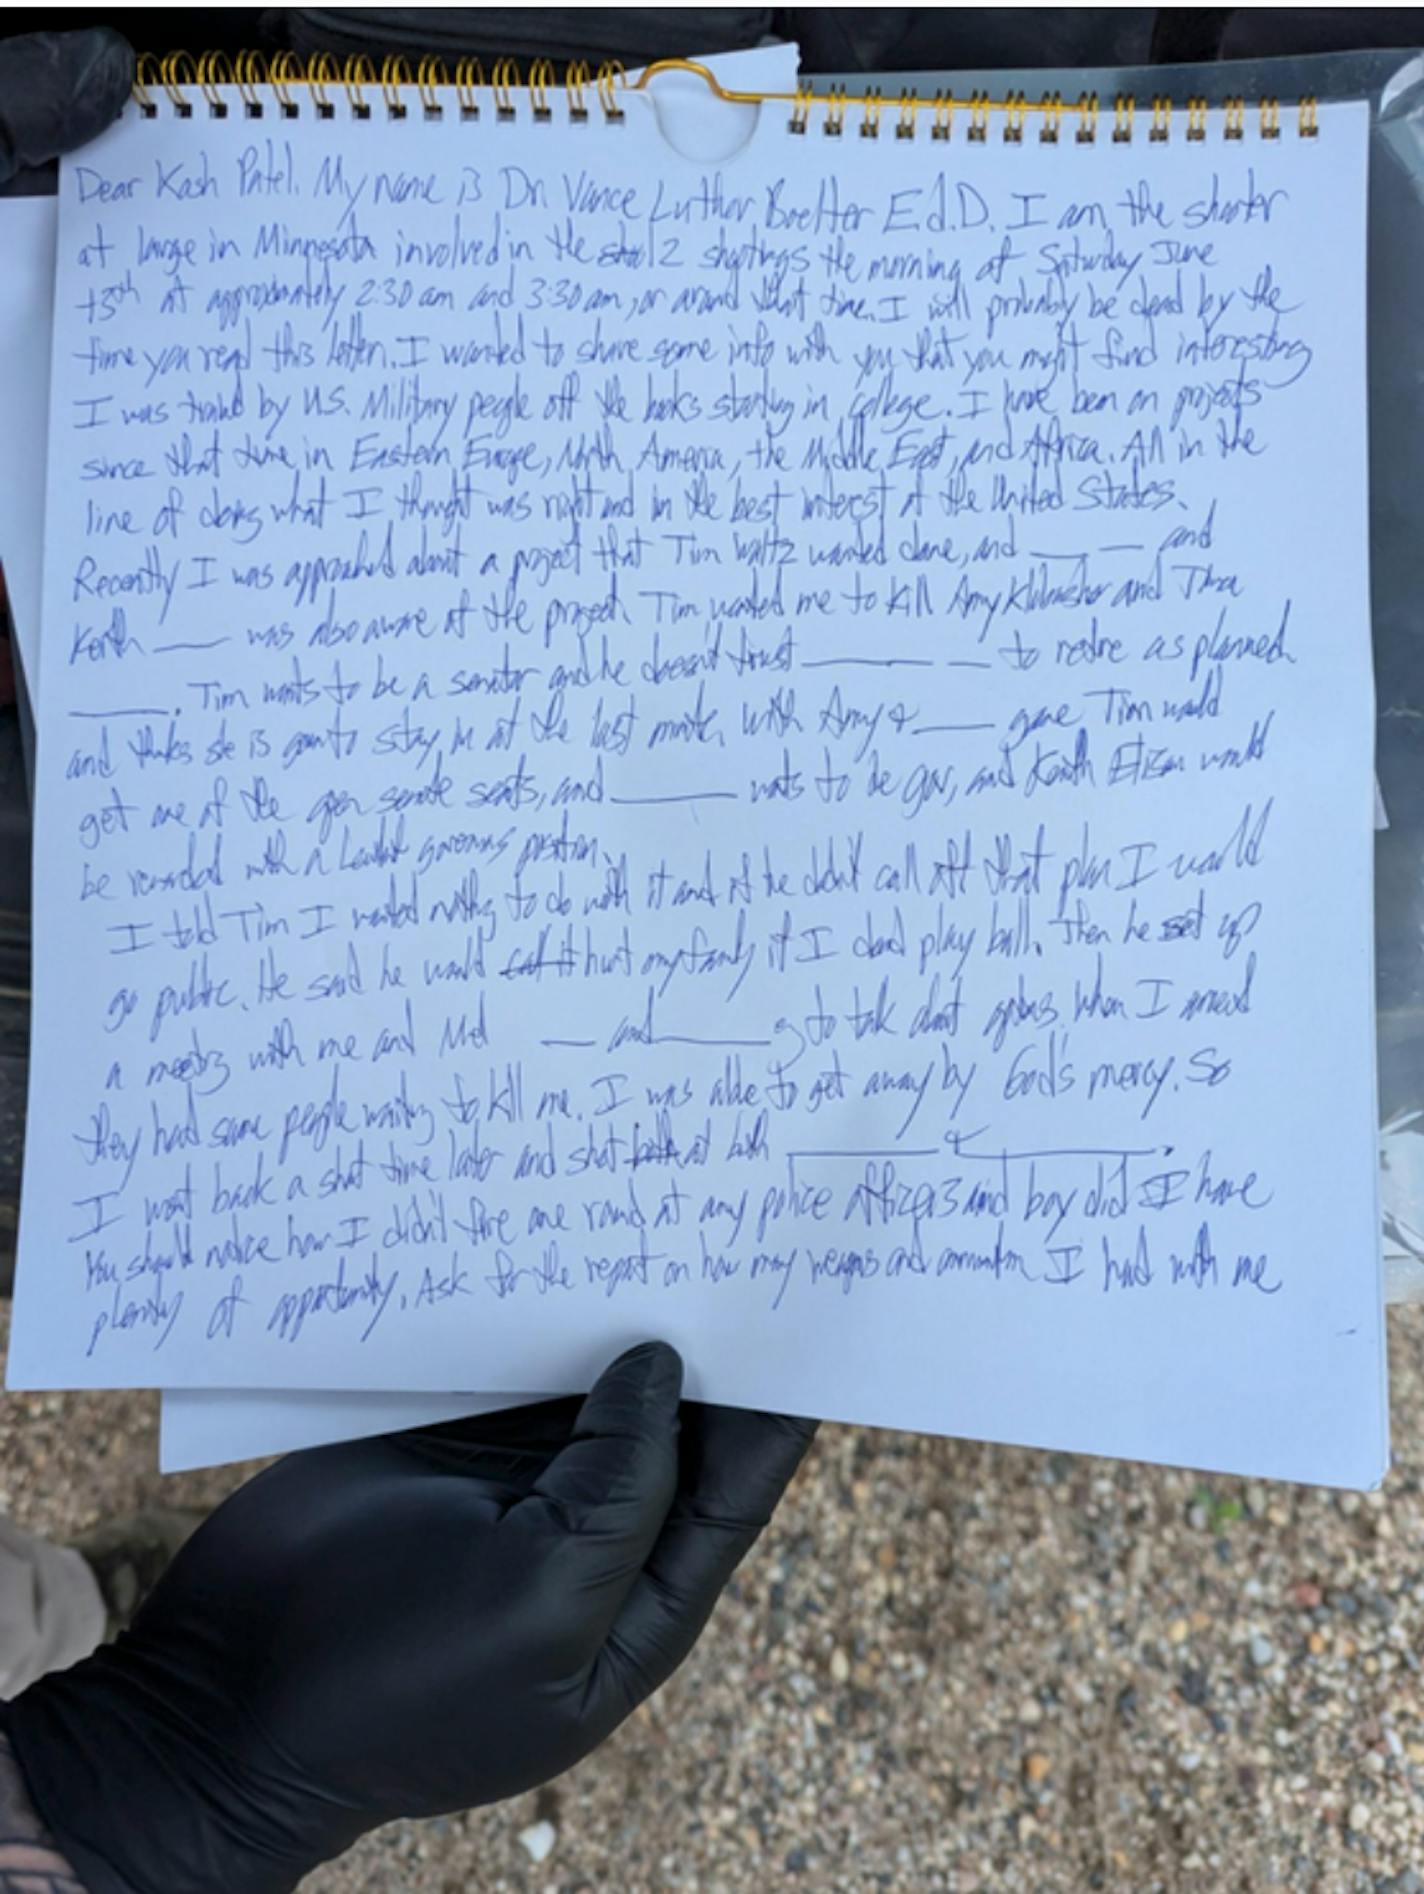 Dear Kash Patel. My name is Dr. Vance Luther Boelter E.d.D. I am the shooter
at large in Minnesota involved in the 2 shootings the morning of Saturday June
13th at approximately 2:30 am and 3:30 am, or around that time. I will probably be dead by the
time you read this letter. I wanted to share some info with you that you might find interesting
I was traind by U.S. Military people off the books starting in college. I have been on projects
since that time in Eastern Europe, North America, the Middle East, and Africa. All in the
line of doing what I thought was right and in the best interest of the United States.
Recently I was approached about a project that Tim Waltz wanted done, and ___ __ and
Keith ___ was also aware of the project. Tim wanted me to kill Amy Klobuchar and Tina
____. Tim wants to be a senator and he doesn't trust ______ __ to retire as planned
and thinks she is gonna stay in at the last minute. With Amy & ___ gone Tim would
get one of the open senate seats, and _____ wants to be gov, and Keith would
be rewarded with a governors position.
I told Tim I wanted nothing to do with it and if he didn't call off that plan I would
go public. He said he would hurt my family if I play ball. Then he set up
a meeting with me and ___ and _____ to talk about When I arrived
they had some people waiting to kill me. I was able to get away by God's mercy. So
I went back a short time later and shot at both ______ & ________.
You should notice how I didn't fire one round at any police officers and boy did I have
plenty of opportunity. Ask for the report on how many weapons and I had with me